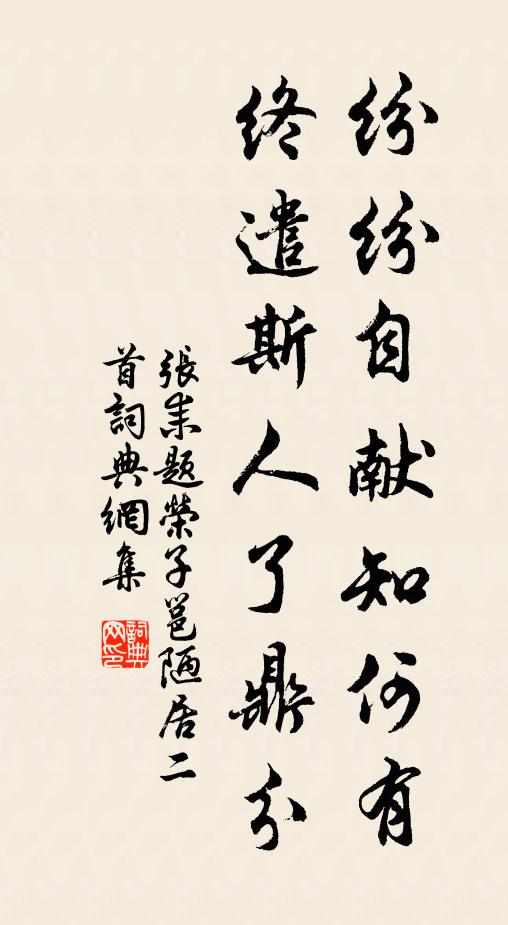 纷纷自献知何有
终遣斯人了鼎分
張耒题榮子邕陋居二
首詞典網集
詞典
网印